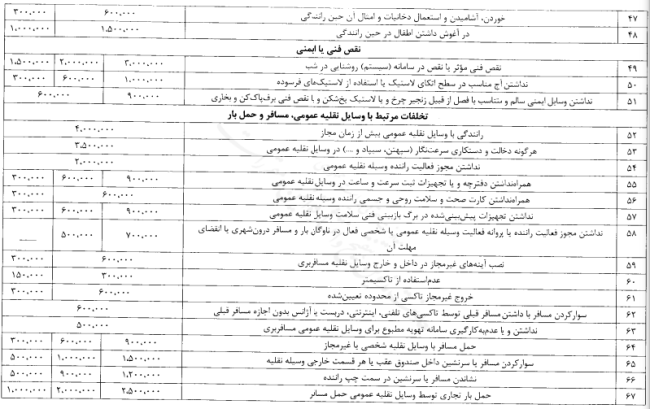 ۴۷ خوردن، آشامیدن و استعمال دخانیات و امثال آن حین رانندگی ۶۰۰.۰۰۰ ۳۰۰.۰۰۰
۴۸ در آغوش داشتن اطفال در حین رانندگی ۱.۵۰۰.۰۰۰ ۱.۰۰۰.۰۰۰
نقص فنی یا ایمنی
۴۹ نقص فنی مؤثر یا نقص در سامانه (سیستم) روشنایی در شب ۳.۰۰۰.۰۰۰ ۲.۰۰۰.۰۰۰ ۱.۵۰۰.۰۰۰
۵۰ نداشتن آج مناسب در سطح اتکای لاستیک یا استفاده از لاستیک‌های فرسوده ۱.۰۰۰.۰۰۰ ۶۰۰.۰۰۰ ۳۰۰.۰۰۰
۵۱ نداشتن وسایل ایمنی سالم و متناسب با فصل از قبیل زنجیر چرخ و یا لاستیک یخ‌شکن و یا نقص فنی برف‌پاک‌کن و بخاری ۹۰۰.۰۰۰ ۶۰۰.۰۰۰
تخلفات مرتبط با وسایل نقلیه عمومی، مسافر و حمل بار
۵۲ رانندگی با وسایل نقلیه عمومی بیش از زمان مجاز ۴.۰۰۰.۰۰۰
۵۳ هرگونه دخالت و دستکاری سرعت‌نگار (سپهتن، سیباد و ...) در وسایل نقلیه عمومی ۳.۵۰۰.۰۰۰
۵۴ نداشتن مجوز فعالیت راننده وسیله نقلیه عمومی ۲.۰۰۰.۰۰۰
۵۵ همراه‌نداشتن دفترچه و یا تجهیزات ثبت سرعت و ساعت در وسایل نقلیه عمومی ۹۰۰.۰۰۰ ۶۰۰.۰۰۰ ۳۰۰.۰۰۰
۵۶ همراه‌نداشتن کارت صحت و سلامت روحی و جسمی راننده وسیله نقلیه عمومی ۶۰۰.۰۰۰ ۳۰۰.۰۰۰
۵۷ نداشتن تجهیزات پیش‌بینی‌شده در برگ بازبینی فنی سلامت وسایل نقلیه عمومی ۹۰۰.۰۰۰ ۶۰۰.۰۰۰ ۳۰۰.۰۰۰
۵۸ نداشتن مجوز فعالیت راننده یا پروانه فعالیت وسیله نقلیه عمومی یا شخصی فعال در ناوگان بار و مسافر درون‌شهری یا انقضای ۷۰۰.۰۰۰ ۵۰۰.۰۰۰ ـــــ
مهلت آن
۵۹ نصب آینه‌های غیرمجاز در داخل و خارج وسایل نقلیه مسافربری ۶۰۰.۰۰۰ ۳۰۰.۰۰۰
۶۰ عدم‌استفاده از تاکسیمتر ۳۰۰.۰۰۰ ۱۵۰.۰۰۰
۶۱ خروج غیرمجاز تاکسی از محدوده تعیین‌شده ۶۰۰.۰۰۰ ۳۰۰.۰۰۰
۶۲ سوارکردن مسافر با داشتن مسافر قبلی توسط تاکسی‌های تلفنی، اینترنتی، دربست یا آژانس بدون اجازه مسافر قبلی ۶۰۰.۰۰۰
۶۳ نداشتن و یا عدم‌به‌کارگیری سامانه تهویه مطبوع برای وسایل نقلیه عمومی مسافربری ۵۰۰.۰۰۰
۶۴ حمل مسافر با وسایل نقلیه شخصی یا غیرمجاز ۹۰۰.۰۰۰ ۶۰۰.۰۰۰ ۳۰۰.۰۰۰
۶۵ سوارکردن مسافر یا سرنشین داخل صندوق عقب یا هر قسمت خارجی وسیله نقلیه ۱.۵۰۰.۰۰۰ ۱.۰۰۰.۰۰۰ ۵۰۰.۰۰۰
۶۶ نشاندن مسافر یا سرنشین در سمت چپ راننده ۱.۲۰۰.۰۰۰ ۹۰۰.۰۰۰ ۵۰۰.۰۰۰
۶۷ حمل بار تجاری توسط وسایل نقلیه عمومی حمل مسافر ۲.۵۰۰.۰۰۰ ۲.۰۰۰.۰۰۰ ۱.۰۰۰.۰۰۰